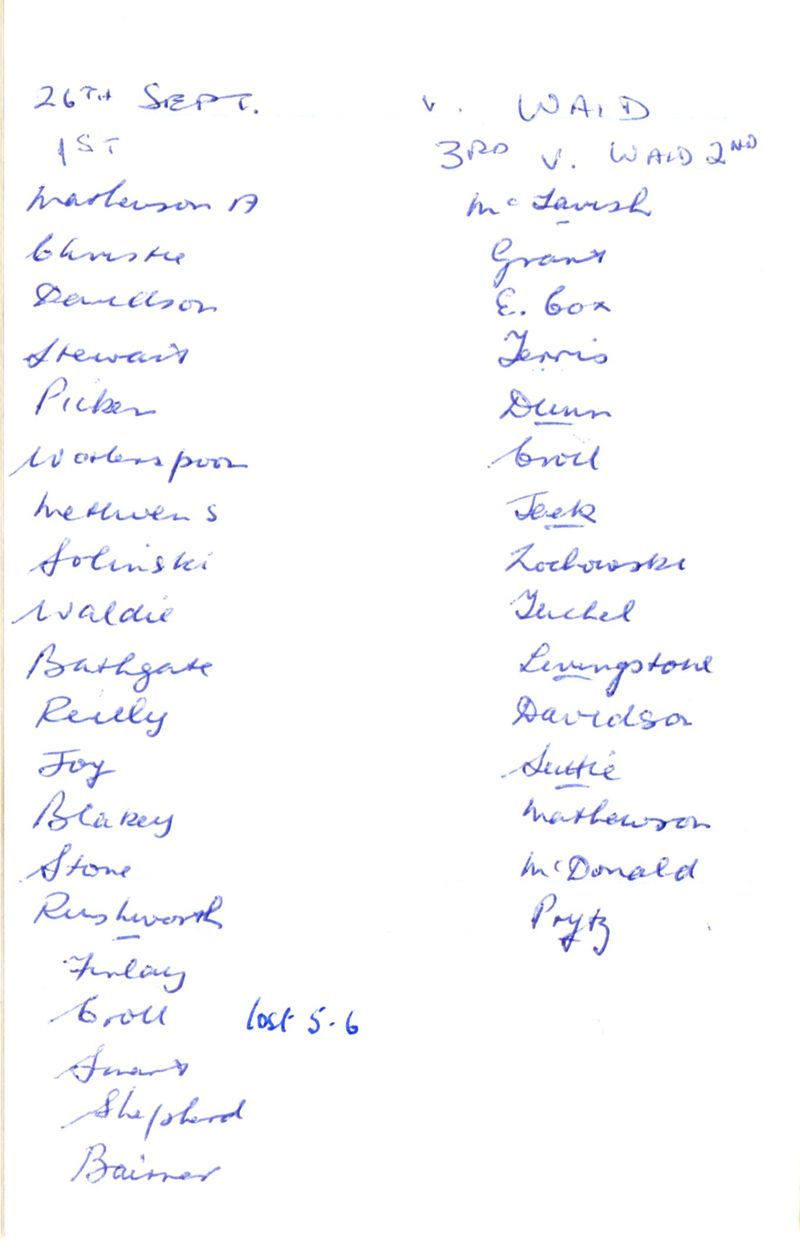 26TH SEPT. v. WAID
1ST
Mathewson A
Christie
Davidson
Stewart
Picken
Wotherspoon
Methven S
Solinski
Waldie
Bathgate
Reilly
Foy
Blakey
Stone
Rushworth
Finlay
Croll lost 5-6
Smart
Shepherd
3RD v. WAID 2ND
McTavish
Grant
E. Cox
Ferris
Dunn
Croll
Jack
Zochowski
Livingstone
Davidson
Suttie
Mathewson
McDonald
Prytz